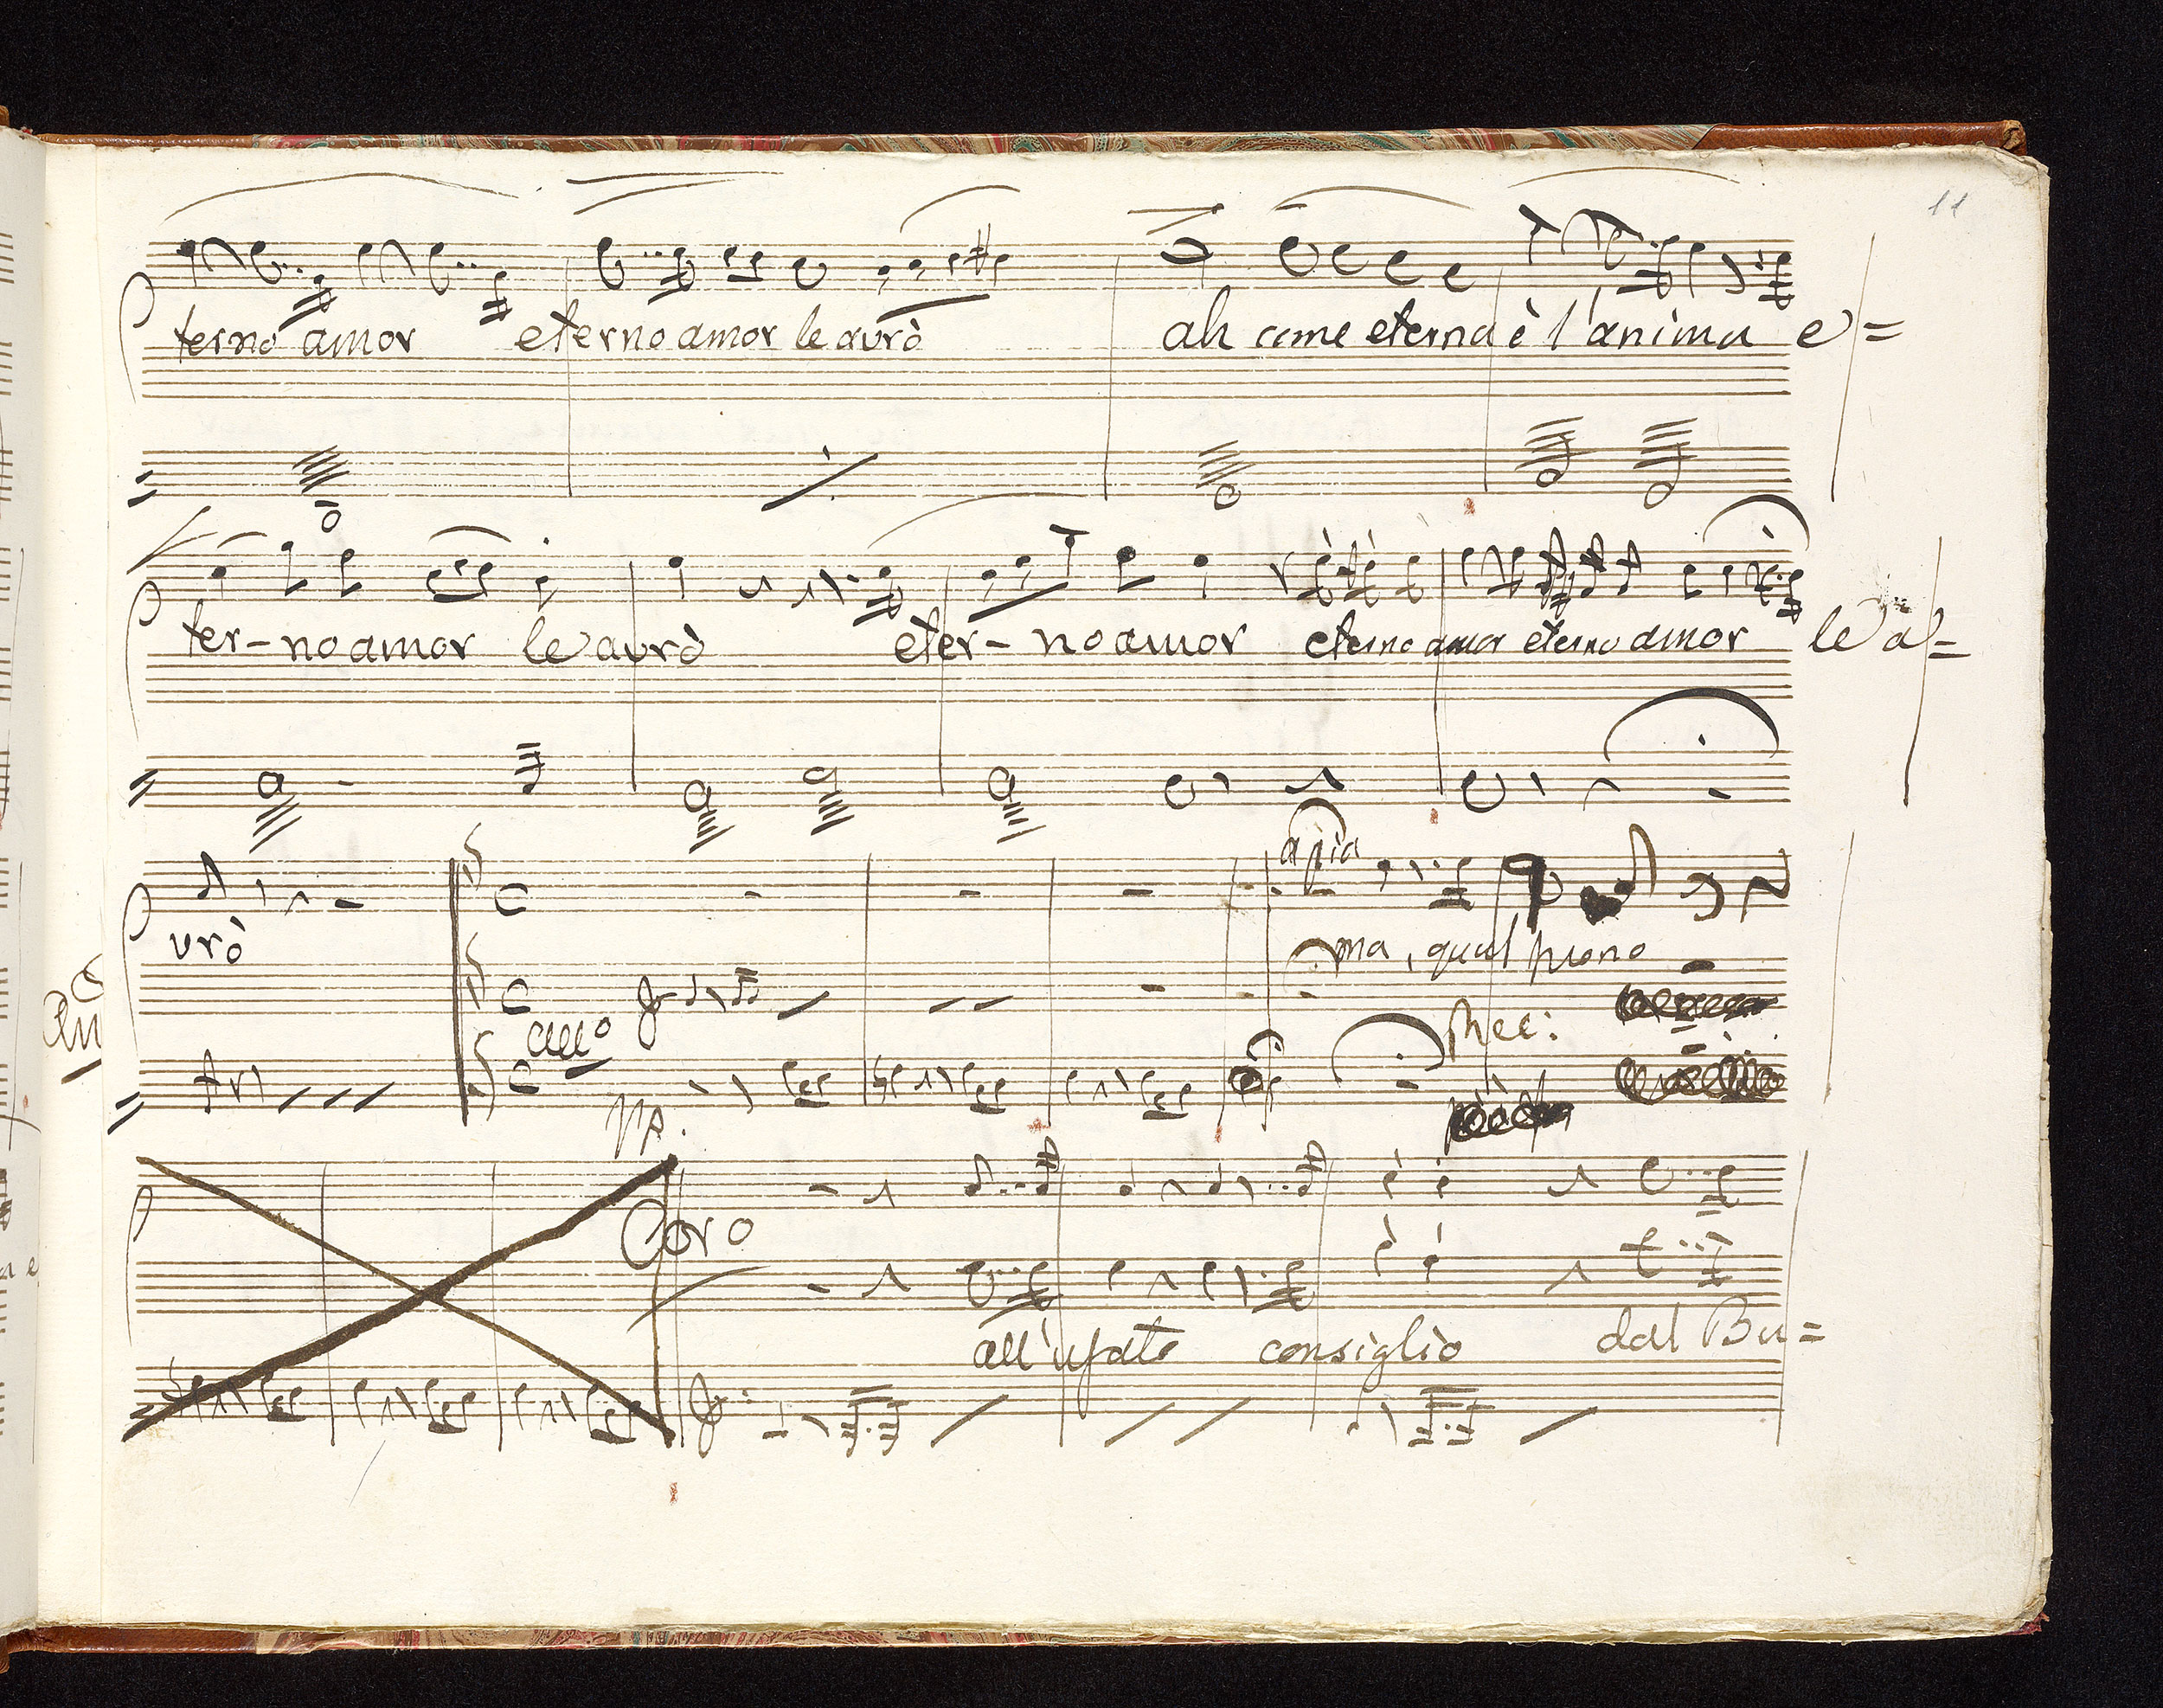 11
terno amor eterno amor le avrò ah come eterna è l'anima e=
ter-no amor le avrò eter-no amor eterno amor eterno amor le a=
vrò ma, qual suono
All°
Rec:
pp.
Coro
all'usato consiglio dal Bu=